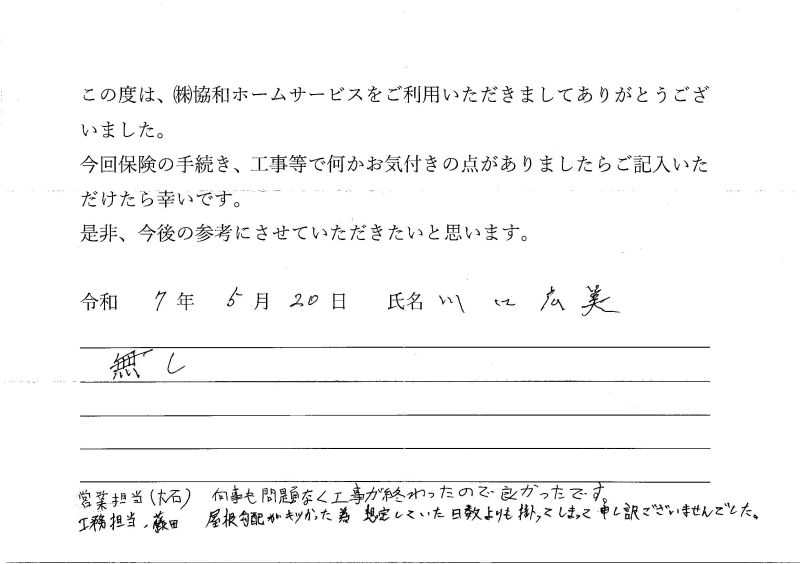 この度は、㈱協和ホームサービスをご利用いただきましてありがとうござ
いました。
今回保険の手続き、工事等で何かお気付きの点がありましたらご記入いた
だけたら幸いです。
是非、今後の参考にさせていただきたいと思います。
令和 7年 5月20日 氏名 川口広美
無し
営業担当(大石) 何事も問題なく工事が終わったので良かったです。
工務担当、藤田 屋根勾配がキツかった為 想定していた日数よりも掛ってしまって申し訳でございませんでした。